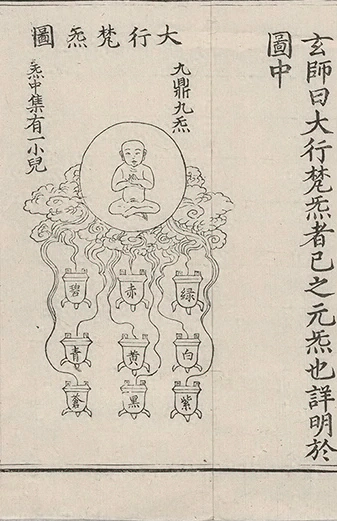 玄師曰大行梵炁者已之元炁也詳明於
圖中
大行梵炁圖
九鼎九炁
炁中集有一小兒
綠
赤
碧
白
黄
青
紫
黑
蒼